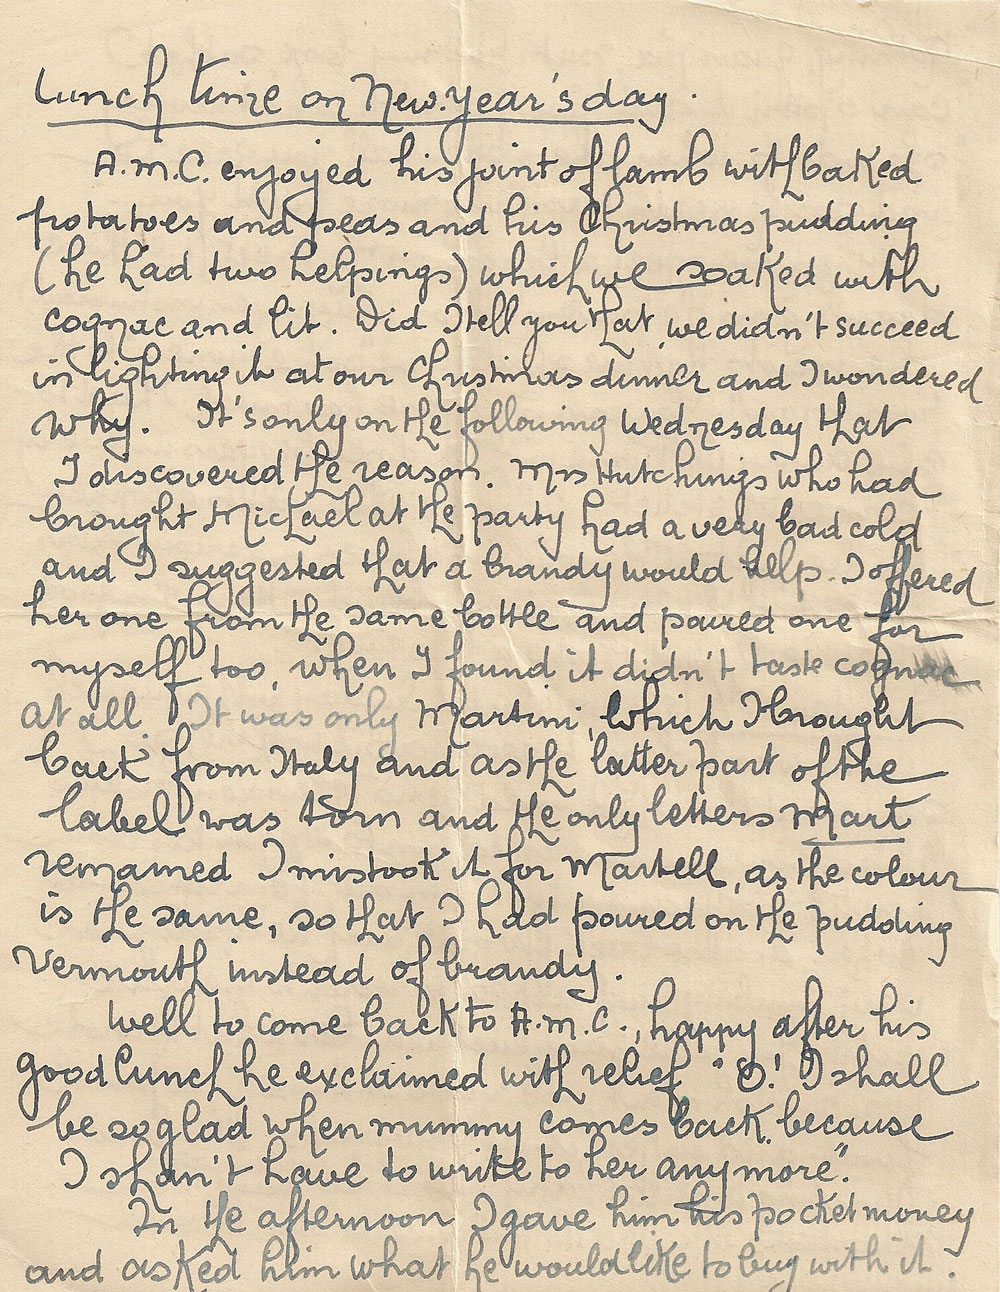 Lunch time on New.Year's day.
A.M.C. enjoyed his joint of lamb with baked
potatoes and peas and his Christmas pudding
(he had two helpings) which we soaked with
cognac and lit. Did I tell you that we didn't succeed
in lighting it at our Christmas dinner and I wondered
why. It's only on the following Wednesday that
I discovered the reason. Mrs Hutchings who had
brought Michael at the party had a very bad cold
and I suggested that a brandy would help. I offered
her one from the same bottle and poured one for
myself too, when I found it didn't taste cognac
at all. It was only Martini, which I brought
back from Italy and as the latter part of the
label was torn and the only letters Mart
remained I mistook it for Martell, as the colour
is the same, so that I had poured on the pudding
Vermouth instead of brandy.
Well to come back to A.M.C., happy after his
good lunch he exclaimed with relief "O! I shall
be so glad when mummy comes back because
I shan't have to write to her any more".
In the afternoon I gave him his pocket money
and asked him what he would like to buy with it.